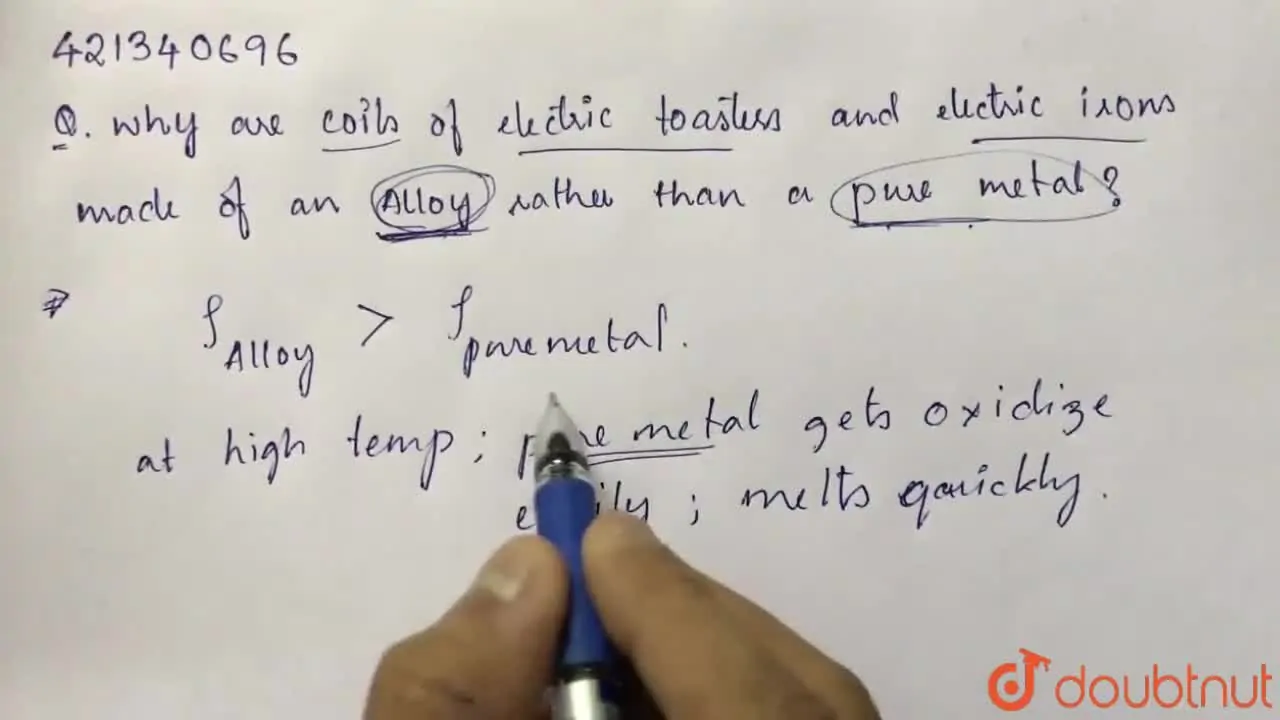 421340696
Q. why are coils of electric toasters and electric irons
made of an Alloy rather than a pure metal?
⇒ ρAlloy > ρpure metal.
at high temp; pure metal gets oxidize
easily; melts quickly.
doubtnut